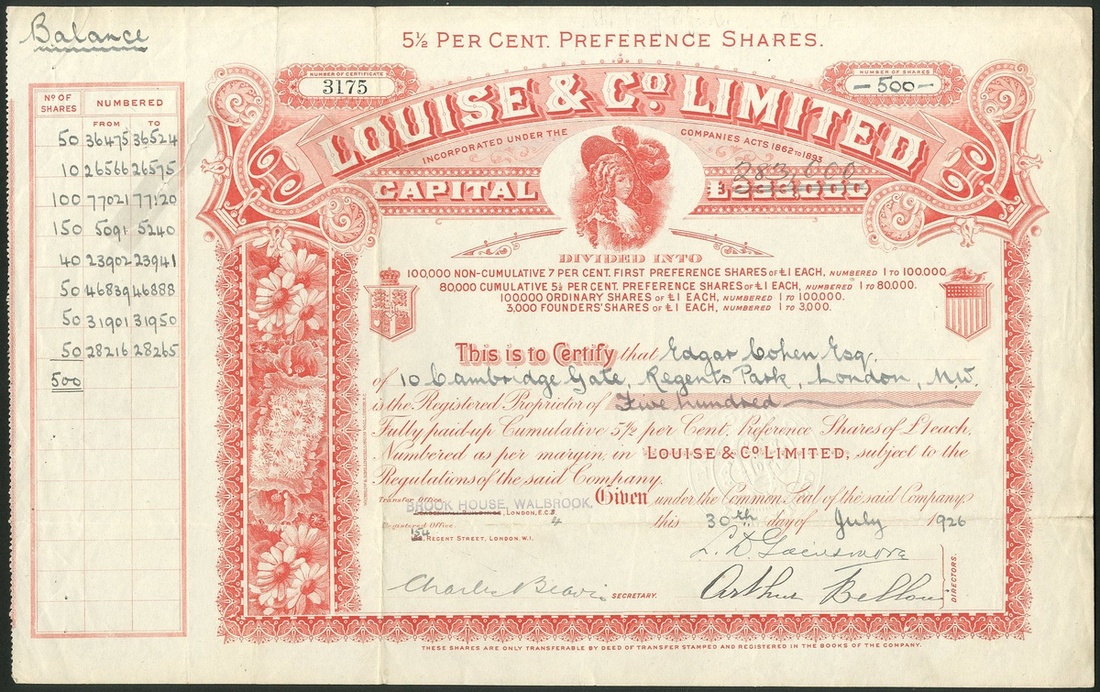 Balance
5½ PER CENT. PREFERENCE SHARES.
NUMBER OF CERTIFICATE
3175
NUMBER OF SHARES
—500—
LOUISE & Cº LIMITED
INCORPORATED UNDER THE COMPANIES ACTS 1862 TO 1893
CAPITAL £283,000
283,000
DIVIDED INTO
100,000 NON-CUMULATIVE 7 PER CENT. FIRST PREFERENCE SHARES OF £1 EACH, NUMBERED 1 TO 100.000.
80,000 CUMULATIVE 5½ PER CENT. PREFERENCE SHARES OF £1 EACH, NUMBERED 1 TO 80.000.
100,000 ORDINARY SHARES OF £1 EACH, NUMBERED 1 TO 100.000.
3,000 FOUNDERS' SHARES OF £1 EACH, NUMBERED 1 TO 3,000.
Nº OF SHARES NUMBERED
FROM TO
50 36475 36524
10 26566 26575
100 77021 77120
150 5091 5240
40 23902 23941
50 46839 46888
50 31901 31950
50 28216 28265
500
This is to Certify that Edgar Cohen Esq.
of 10 Cambridge Gate, Regents Park, London, N.W.
is the Registered Proprietor of Five hundred
Fully paid-up Cumulative 5½ per Cent. Preference Shares of £1 each,
Numbered as per margin in LOUISE & Cº LIMITED, subject to the
Regulations of the said Company.
Given under the Common Seal of the said Company,
this 30th day of July 1926
Transfer Office,
BROOK HOUSE, WALBROOK,
LONDON, E.C.
4
Registered Office,
154
REGENT STREET, LONDON. W.1.
Charles SECRETARY.
Arthur
DIRECTORS.
THESE SHARES ARE ONLY TRANSFERABLE BY DEED OF TRANSFER STAMPED AND REGISTERED IN THE BOOKS OF THE COMPANY.